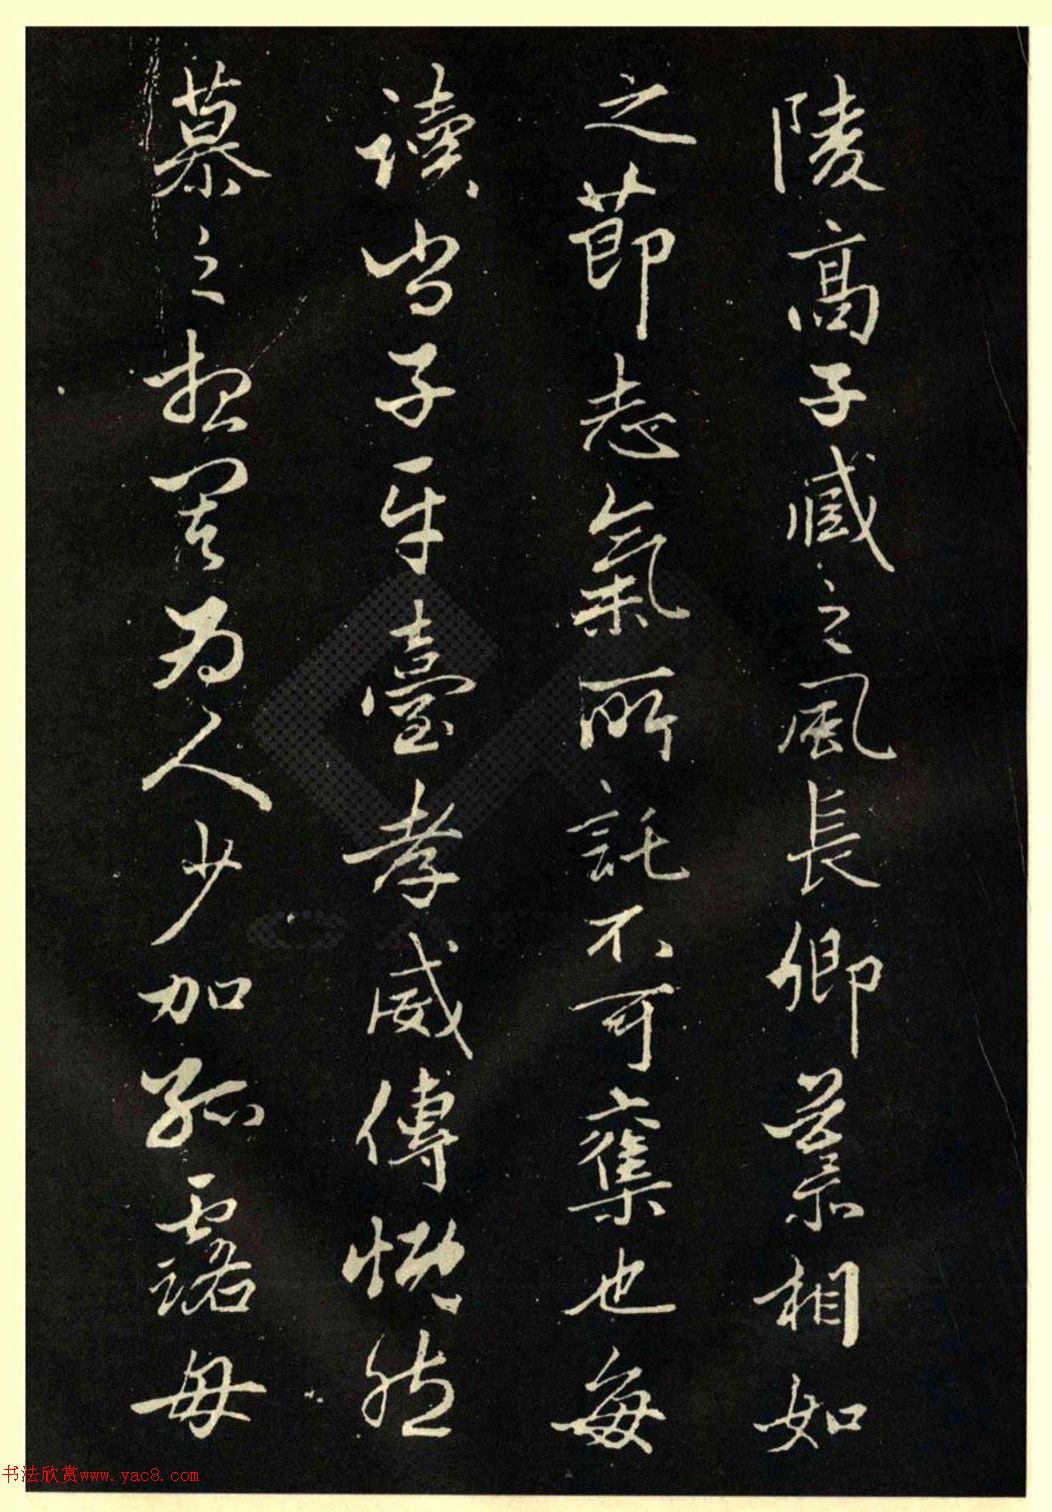 陵高子臧之風長卿慕相如
之節志氣所託不可奪也每
讀尚子平臺孝威傳慨然
慕之想其為人少加孤露母
书法欣赏www.yac8.com